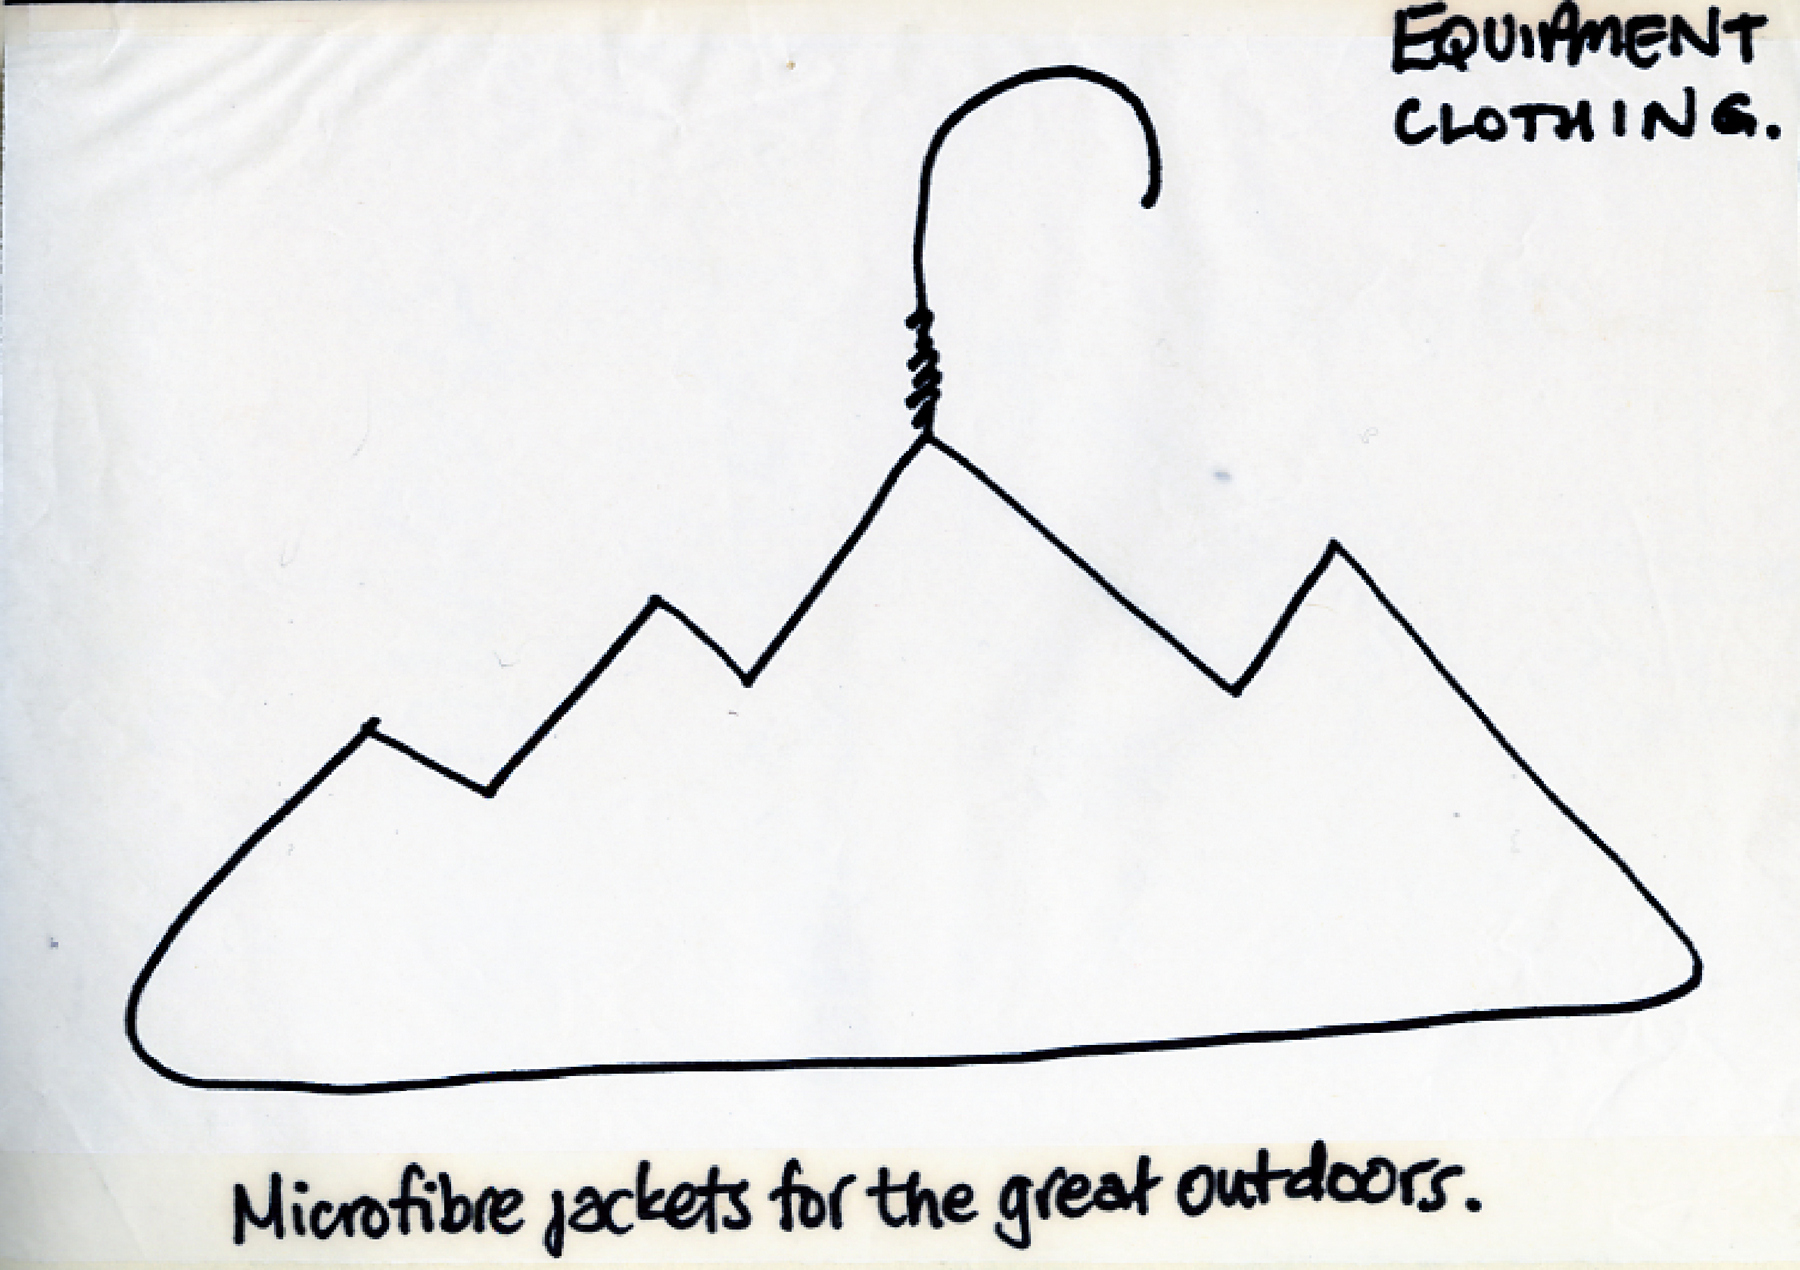 EQUIPMENT
CLOTHING.
Microfibre jackets for the great outdoors.